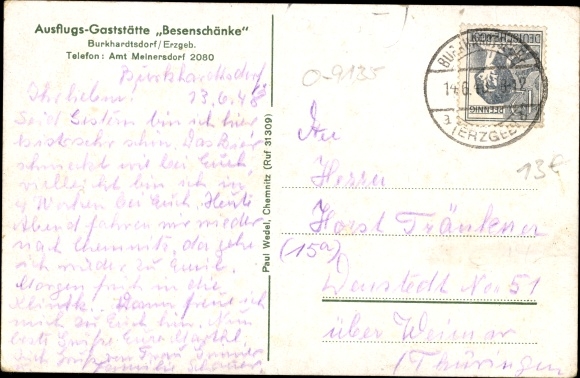 Ausflugs-Gaststätte „Besenschänke"
Burkhardtsdorf/Erzgeb.
Telefon: Amt Meinersdorf 2080
Burkhardtsdorf
Ihr lieben! 13.6.48
Seid Gestern bin ich hier
sehr schön. Das Bier
schmeckt wie bei Euch,
vielleicht bin ich in
Wochen bei Euch. Heute
Abend fahren wir wieder
nach Chemnitz, da gehe
ich wieder zu
Morgen früh in die
Klinik. Dann freue ich
mich zu Euch hin. Nun
beste Grüße
Frau
Familie
Paul Wedel, Chemnitz (Ruf 31309)
0-9135
13€
DEUTSCHE POST
PFENNIG
14.6.48
a
(ERZGEB)
An
Herrn
Horst Tränkner
(15a)
Denstedt No 51
über Weimar
(Thüringen